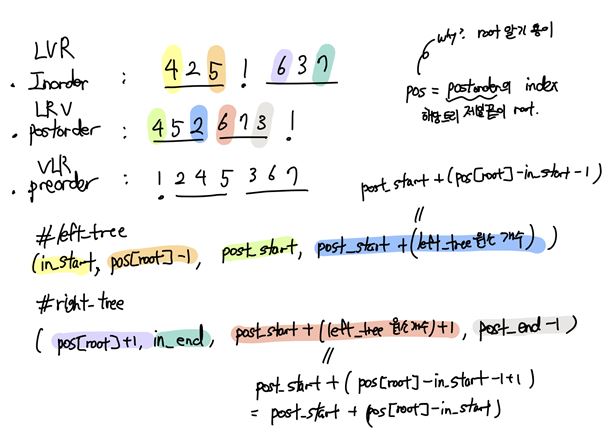 LVR
. Inorder : 4 2 5 1 6 3 7
LRV
. postorder : 4 5 2 6 7 3 1
VLR
. preorder : 1 2 4 5 3 6 7
why? root 알기 용이
pos = postorder의 index
해당트리 제일끝이 root.
post_start + (pos[root]-in_start-1)
//
#left_tree
(in_start, pos[root]-1, post_start, post_start + (left_tree 원소 개수) )
#right_tree
( pos[root]+1, in_end, post_start + (left_tree 원소 개수)+1, post_end -1)
//
post_start + ( pos[root]-in_start-1+1)
= post_start + (pos[root]-in_start)